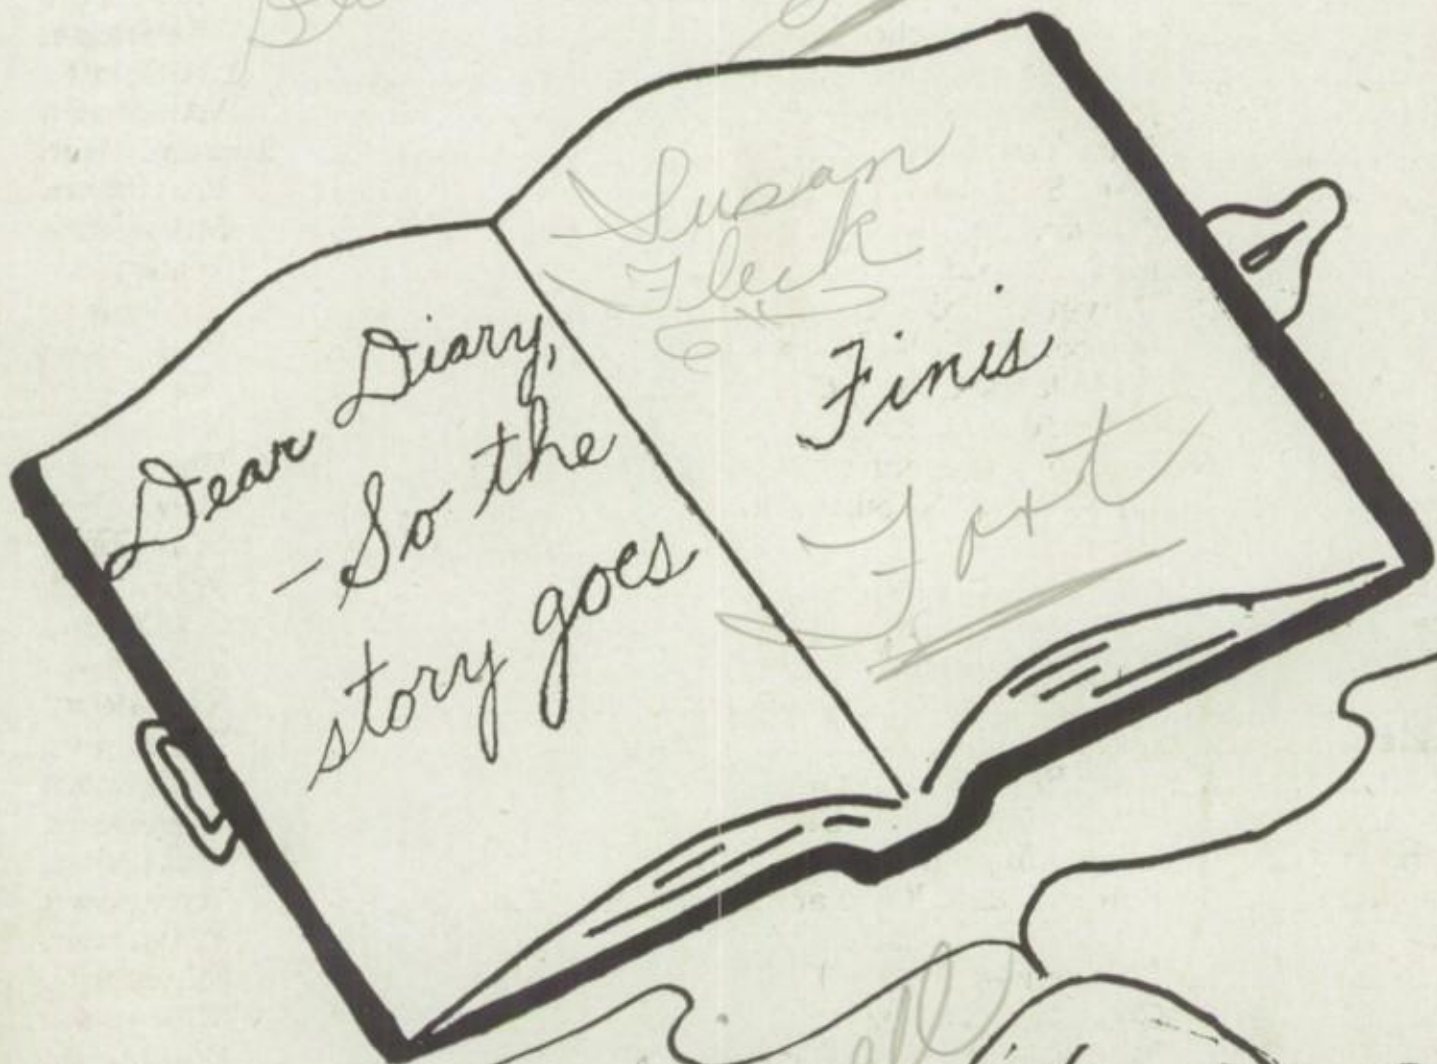 Dear Diary,
-So the
story goes
Susan
Fleck
Finis